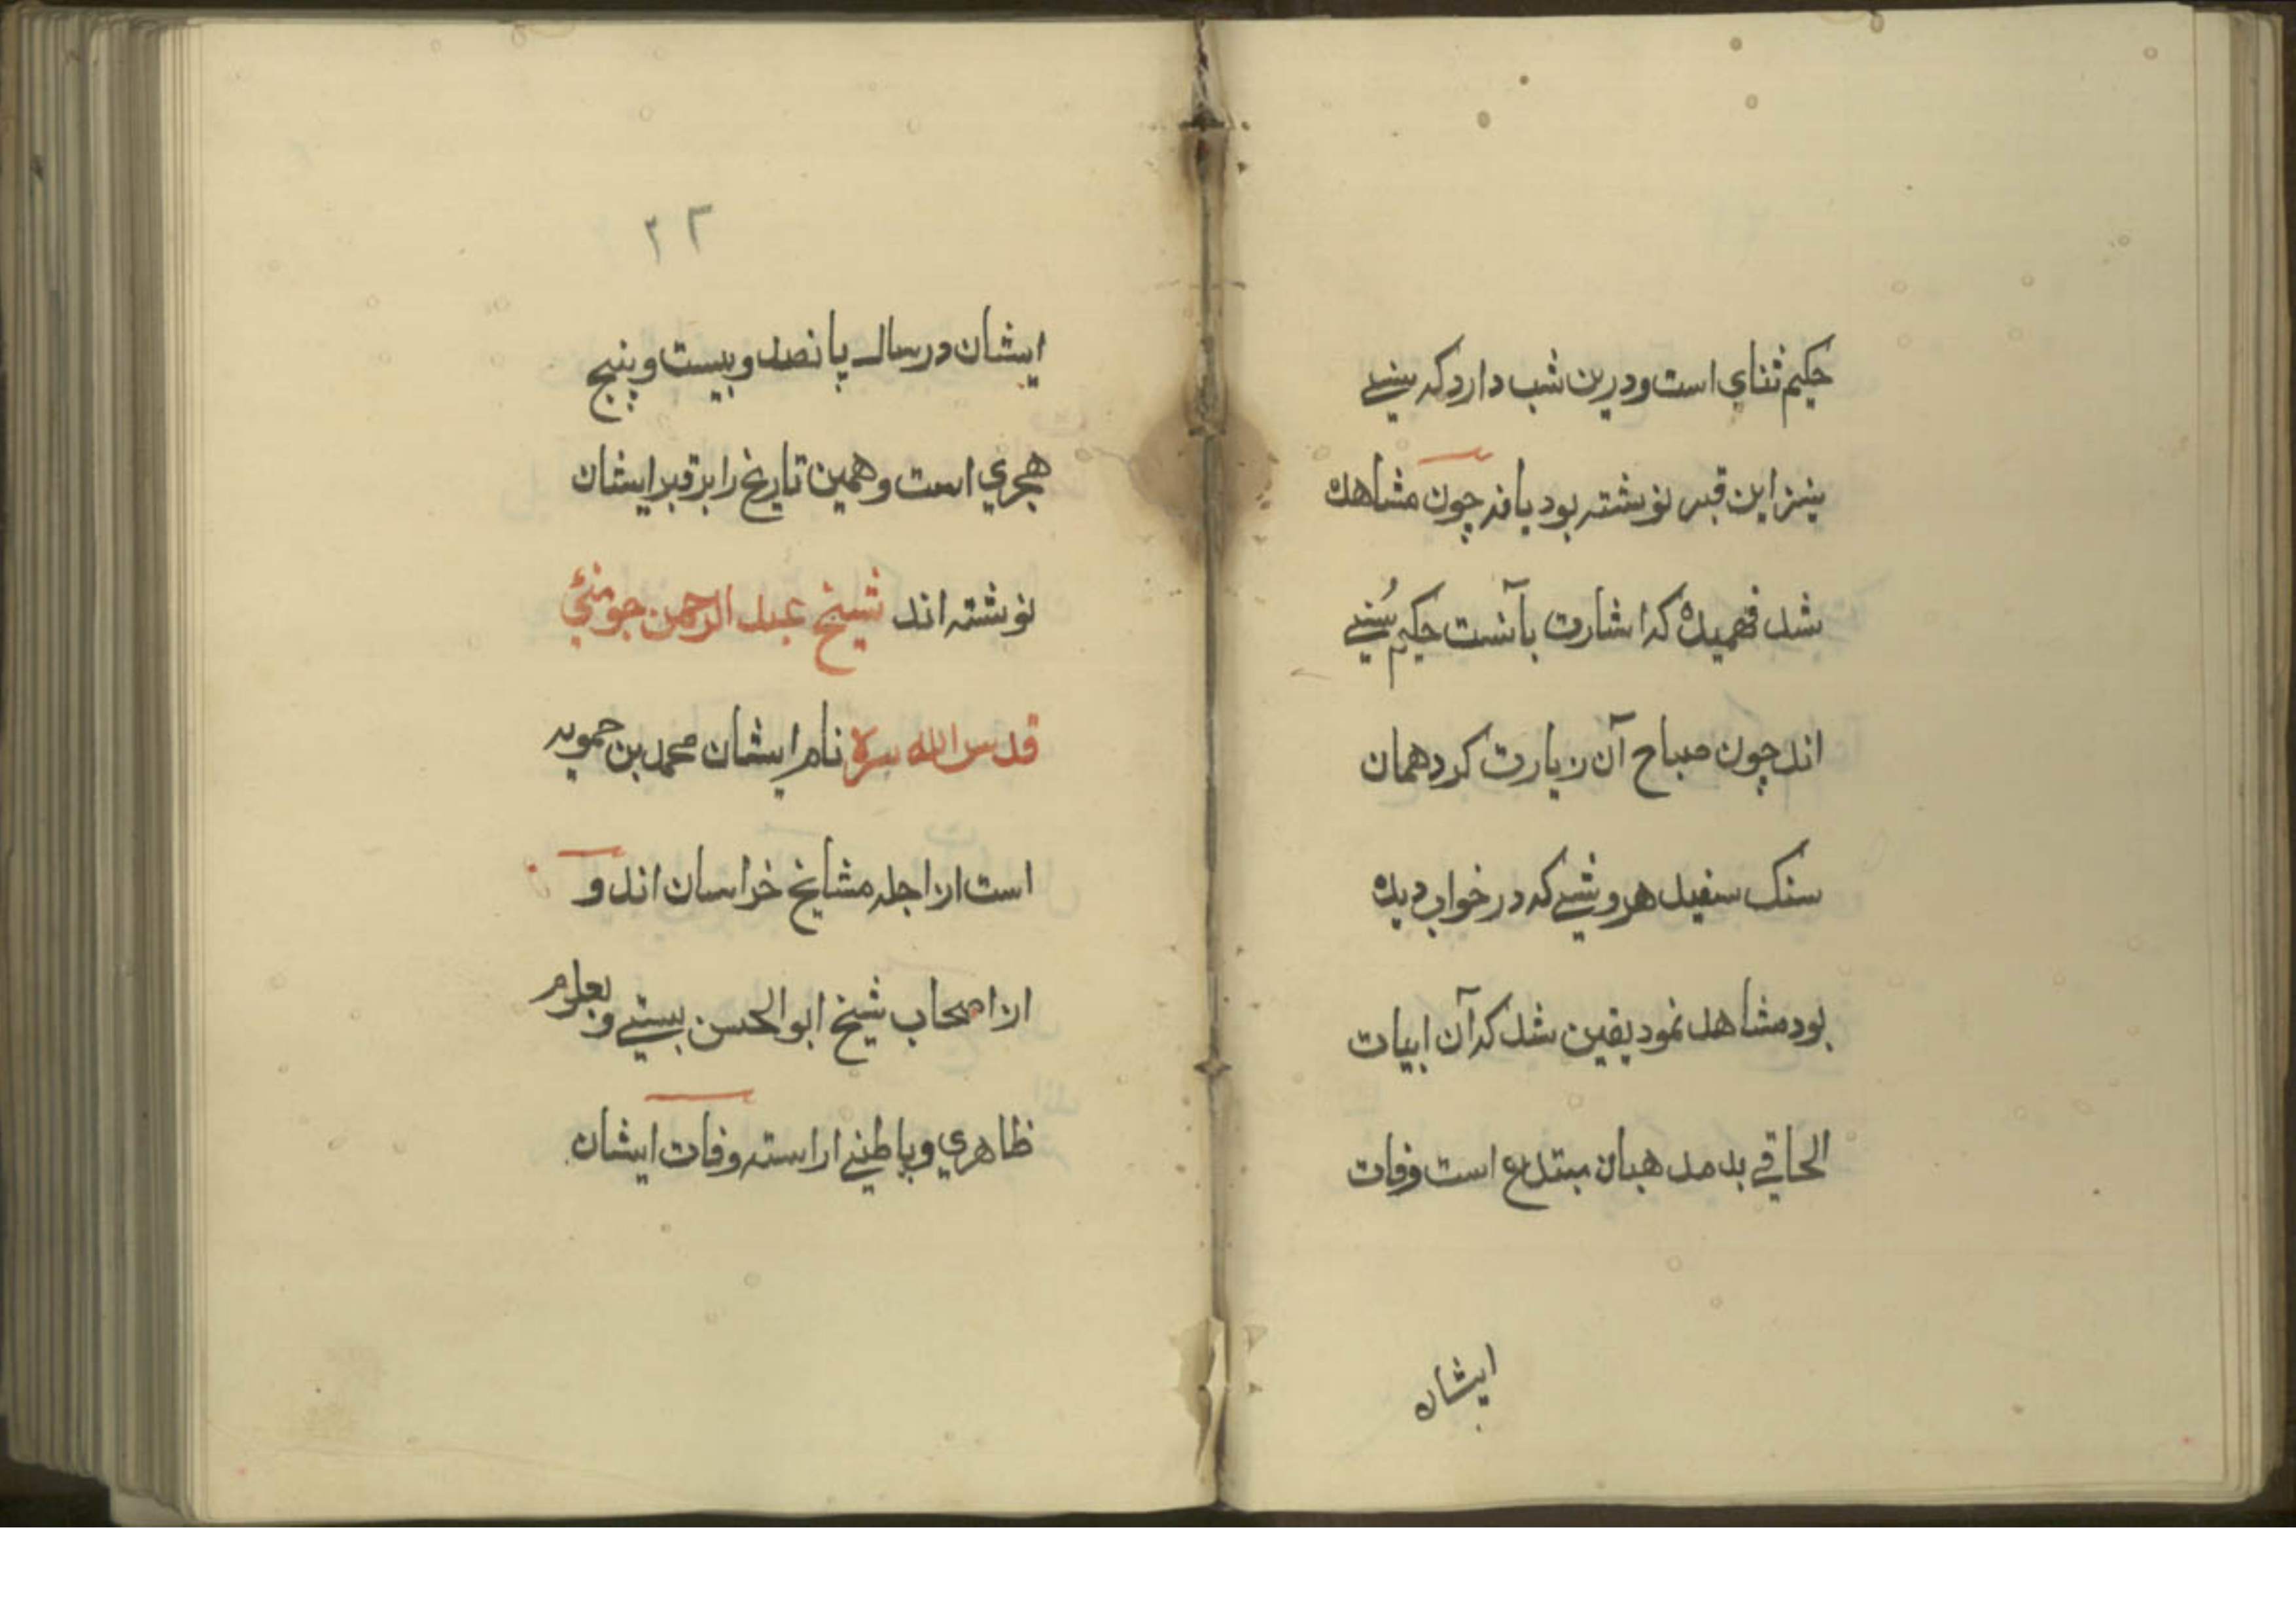 حکیم ثنای است و درین شب دارد که سنیے
بنزاین قبر نوشته بود یا نه چون مشاهده
شد فهمیده که اشارت بآنست حکیم سُنیے
اند چون صباح آن زیارت کرد همان
سنک سفید هر وشیے که در خواب دیده
بود مشاهد نمود یقین شد که آن ابیات
الحاقے بد مد هبان مبتدع است وفات
ایشان
۳۲
ایشان در سال پانصد و بیست و پنج
هجري است و همین تاریخ را بر قبر ایشان
نوشته اند شیخ عبد الرحمن جومنئي
قدس الله سره نام ایشان محمد بن حمویه
است از اجله مشایخ خراسان اند و
از اصحاب شیخ ابو الحسن بستیے و بعلوم
ظاهري و باطنیے اراسته وفات ایشان